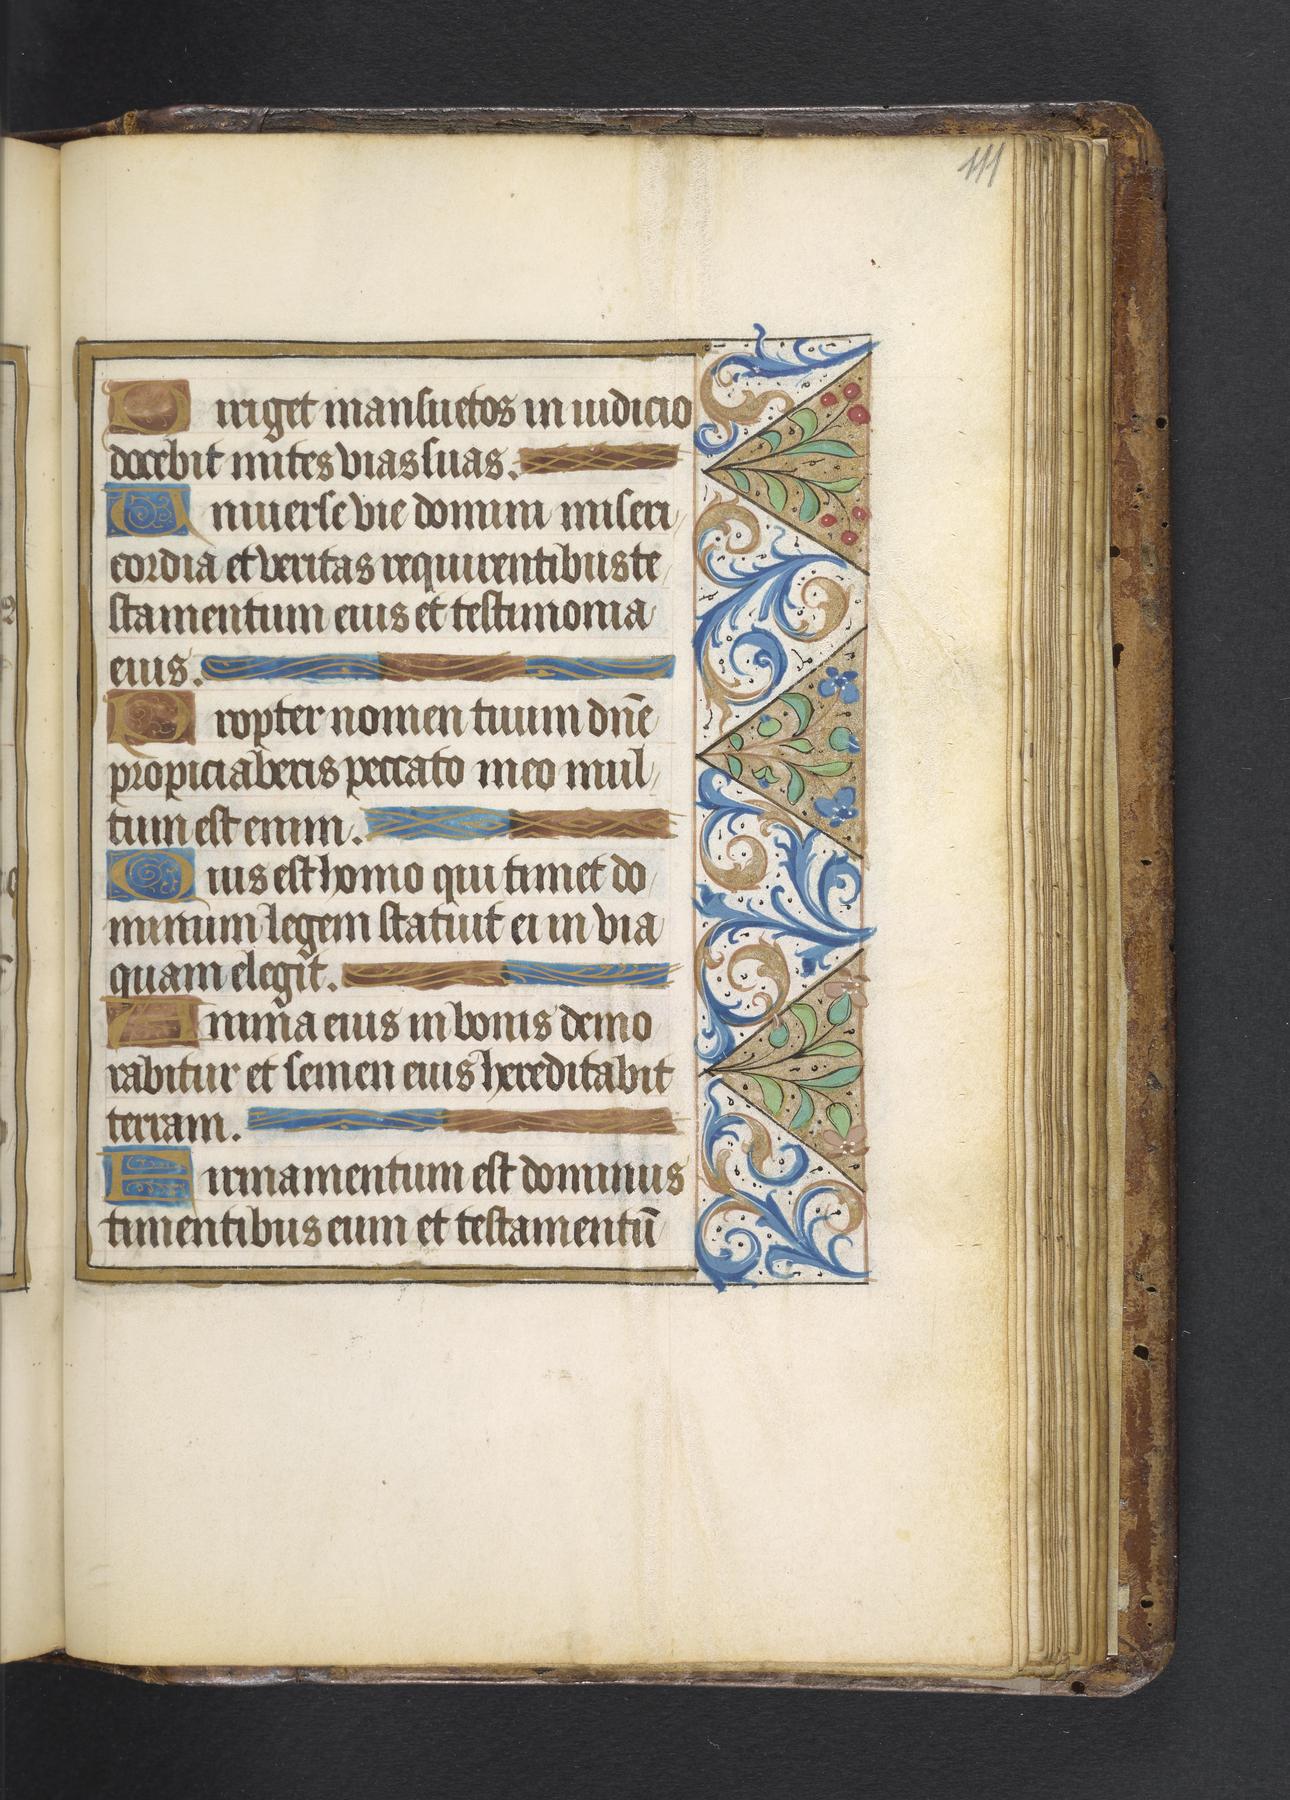 111
Diriget mansuetos in iudicio
docebit mites vias suas.
Uniuerse vie domini miseri
cordia et veritas requirentibus te
stamentum eius et testimonia
eius.
Propter nomen tuum dn̄e
propiciaberis peccato meo mul
tum est enim.
Quis est homo qui timet do
minum legem statuit ei in via
quam elegit.
Anima eius in bonis demo
rabitur et semen eius hereditabit
terram.
Firmamentum est dominus
timentibus eum et testamentū